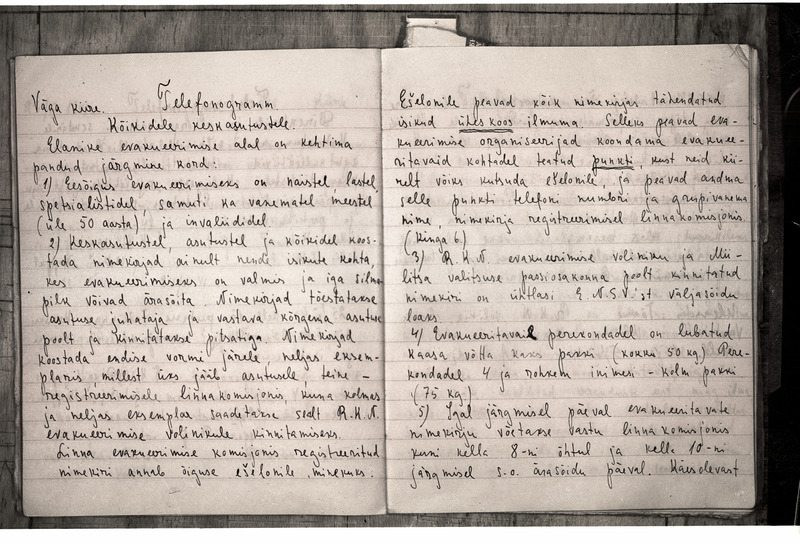 Väga kiire. Telefonogramm.
Kõikidele keskasutustele.
Elanike evakueerimise alal on kehtima
pandud järgmine kord:
1) Eesõigus evakueerimiseks on naistel, lastel,
spetsialistidel, samuti ka vanematel meestel
(üle 50 aasta) ja invaliididel.
2) Keskasutustel, asutustel ja kõikidel koos-
tada nimekirjad ainult nende isikute kohta,
kes evakueerimiseks on valmis ja iga silma-
pilk võivad ärasõita. Nimekirjad tõestatakse
asutuse juhataja ja vastava kõrgema asutuse
poolt ja kinnitatakse pitsatiga. Nimekirjad
koostada endise vormi järele, neljas eksem-
plaris, millest üks jääb asutusele, teine –
registreerimisele linnakomisjonis, kuna kolmas
ja neljas eksemplar saadetakse sealt R.K.N.
evakueerimise volinikule kinnitamiseks.
Linna evakueerimise komisjonis registreeritud
nimekiri annab õiguse ešelonile minekuks.
Ešelonile peavad kõik nimekirjas tähendatud
isikud üheskoos ilmuma. Selleks peavad eva-
kueerimise organiseerijad koondama evakuee-
ritavaid kohtadel teatud punkti, kust neid kii-
relt võiks kutsuda ešelonile, ja peavad andma
selle punkti telefoni numbri ja grupivanema
nime, nimekirja registreerimisel linnakomisjonis
(Kinga 6.)
3) R.K.N. evakueerimise voliniku ja Mii-
litsa valitsuse passiosakonna poolt kinnitatud
nimekiri on ühtlasi E.N.S.V.'st väljasõidu
loaks.
4) Evakueeritavail perekondadel on lubatud
kaasa võtta kaks pakki (kokku 50 kg.) Pere-
kondadel 4 ja rohkem inimesi – kolm pakki
(75 kg.)
5) Igal järgmisel päeval evakueeritavate
nimekirju võetakse vastu linnakomisjonis
kuni kella 8-ni õhtul ja kella 10-ni
järgmisel s.o. ärasõidu päeval. Käesolevast